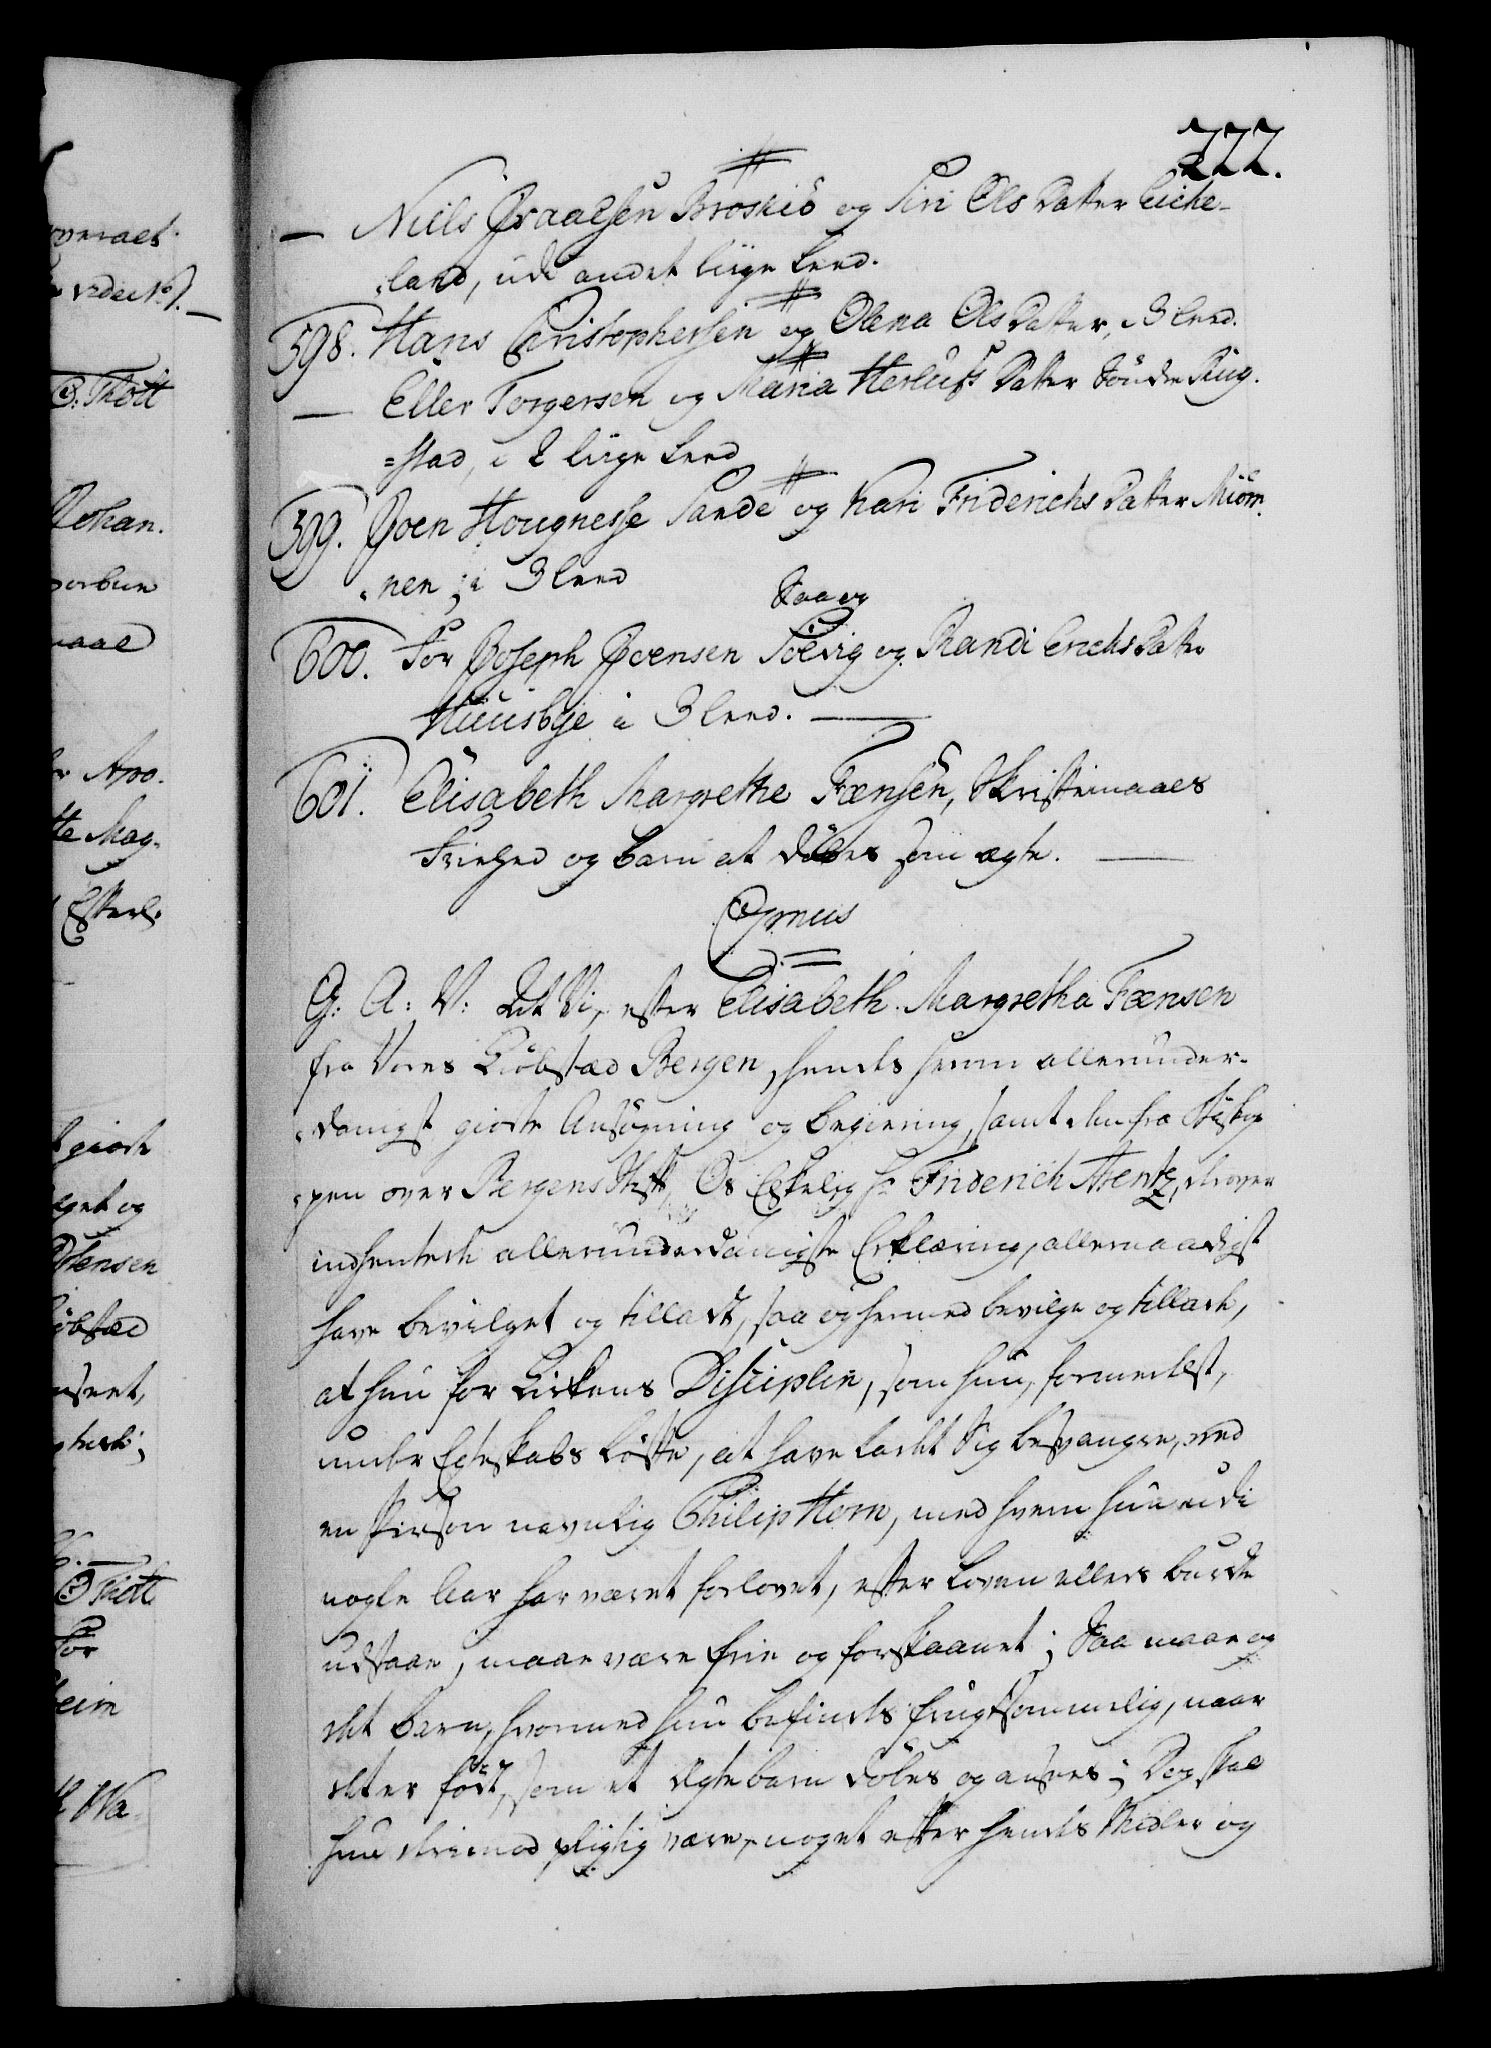 222.
— Niels Israelsen Broskiö og Siri Ols Datter Eiche-
land, udi andet liige Leed.
598. Hans Christophersen og Olena Ols Datter, i 3 Leed.
— Eller Torgersen og Maria Herlufs Datter Söndre Ring-
=stad, i 2 liige Leed
599. Joen Hougnesse Sande og Kari Friderichs Datter Miöm-
nen; i 3 Leed
Saa og
600. For Joseph Joensen Solvig og Randi Erichs Datter
Huusbye i 3 Leed. —
601. Elisabeth Margrethe Fæensen, Skriftemaals
Friehed og Barn at döbes som ægte. —
G: A: V: At Vi, efter Elisabeth Margretha Fæensen
fra Vores Kiöbstæd Bergen, hendes herom allerunder-
danigst giorte Ansögning og Begiering, samt den fra Biskop-
pen over Bergens Stift, Os Elskelig Hr Friderich Arentz, derover
indhentede allerunderdanigste Erklæring, allernaadigst
have bevilget og tilladt, saa og hermed bevilge og tillade,
at hun for Kirkens Disciplin, som hun, formedelst,
under Egteskabs Löfte, at have ladet sig besvangre, med
en Person navnlig Philip Horn, med hvem hun udi
nogle Aar har været forlovet, efter Loven ellers burde
udstaae, maae være frie og forskaanet; Saa maae og
det Barn, hvormed hun befindes frugtsommelig, naar
det er födt, som et ægte barn döbes og ansees; Dog skal
hun derimod pligtig være, noget efter hendes Midler og